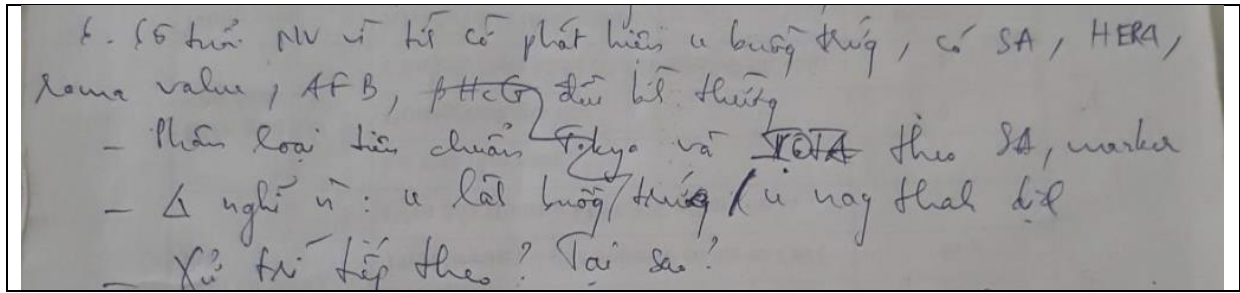 6. 65 tuổi NV vì tc có phát hiện u buồng trứng, có SA, HE4,
Roma value, AFB, βHCG đều bt thường
- Phân loại tiêu chuẩn Tokyo và IOTA theo SA, marker
- Δ nghĩ : u lát buồng trứng / u nag thah dịch
- Xử trí tiếp theo? Tại sao?